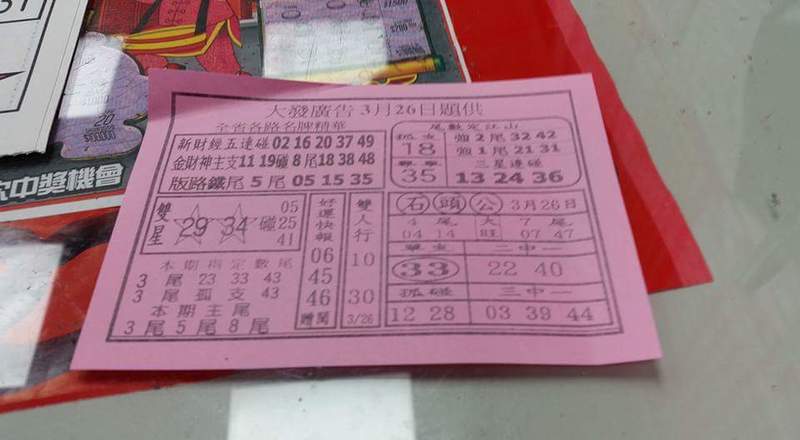 大發廣告 3月26日題供
全省各路名牌精華
新財經五連碰 02 16 20 37 49
金財神主支 11 19 碰 8 尾 18 38 48
版路鐵尾 5 尾 05 15 35
尾數定江山
孤支 強 2 尾 32 42
18 強 1 尾 21 31
三星連碰
35 13 24 36
雙星 29 34 碰 05 25 41
本期指定數尾
3 尾 23 33 43
3 尾 孤支 43
本期主尾
3尾 5尾 8尾
好運快報
06
45
46
贈閱
雙人行
10
30
3/26
石頭公 3月26日
4 尾 大 7 尾
04 14 旺 07 47
單支 二中一
33 22 40
孤碰 三中一
12 28 03 39 44
次中獎機會
20